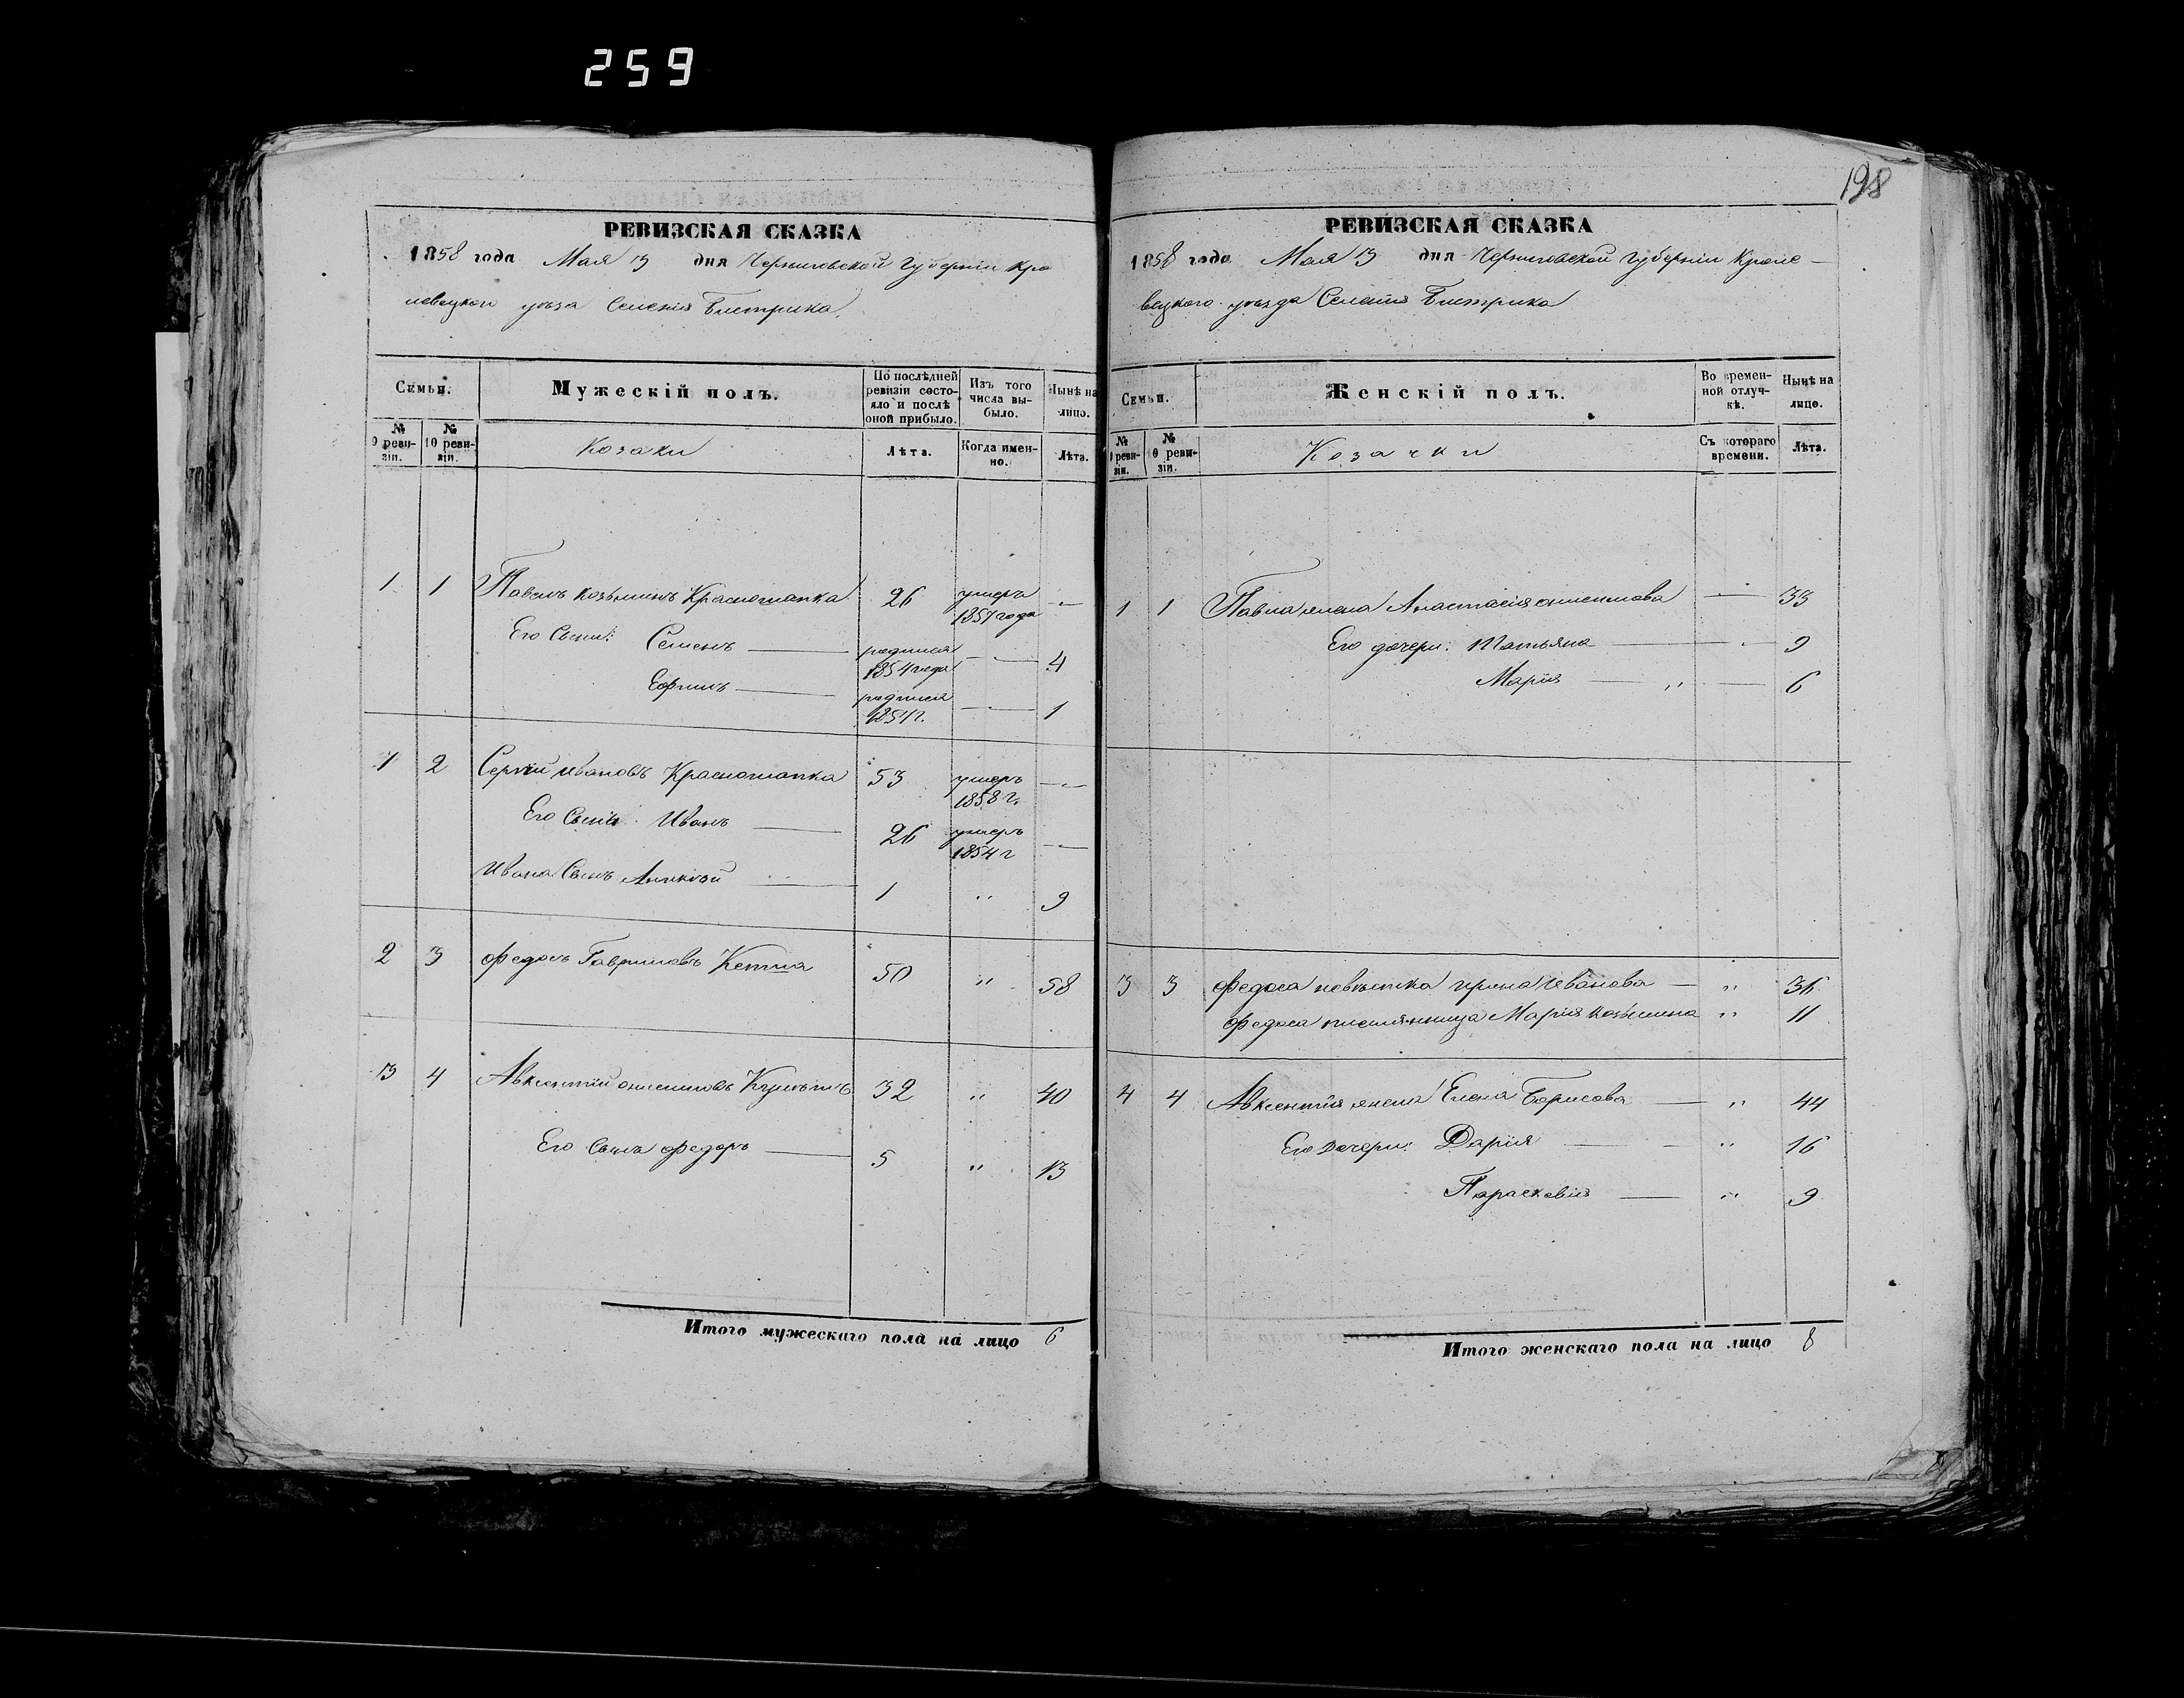 259
198
РЕВИЗСКАЯ СКАЗКА
1858 года Мая 13 дня Черниговской Губерніи Кро
левецкого уезда Селенія Бистрика
Семьи.
Мужескій полъ.
По послѣдней ревизіи состояло и послѣ оной прибыло.
Изъ того числа выбыло.
Нынѣ на лицо.
№ 9 ревизіи.
№ 10 ревизіи.
Козаки
Лѣта.
Когда именно.
Лѣта.
1 1 Павелъ Козьминъ Красношапка 26 умеръ 1857 года —
Его Сыни: Семенъ — родился 1854 года — 4
Ефимъ — родился 1857 г. — 1
1 2 Сергій Ивановъ Красношапка 53 умеръ 1858 г. —
Его Сынъ Иванъ — 26 умеръ 1854 г —
Ивана Сынъ — 1 " 9
2 3 Федосъ Гавриловъ 50 " 58
3 4 Авксентій Онисимовъ 32 " 40
Его Сынъ Федоръ — 5 " 13
Итого мужескаго пола на лицо 6
РЕВИЗСКАЯ СКАЗКА
1858 года Мая 13 дня Черниговской Губерніи Кроле-
вецкого уезда Селенія Бистрика
Семьи.
Женскій полъ.
Во временной отлучкѣ.
Нынѣ на лицо.
№ 9 ревизіи.
№ 10 ревизіи.
Козачки
Съ котораго времени.
Лѣта.
1 1 Павла жена Анастасія Онисимова — 33
Его дочери: Татьяна — 9
Марія — " — 6
3 3 Федоса невѣстка Ирина Иванова — " 36
Федоса племянница Марія Козьмина " 11
4 4 Авксентія жена Елена Борисова — " 44
Его Дочери: Дарія — " 16
Параскевія — " 9
Итого женскаго пола на лицо 8